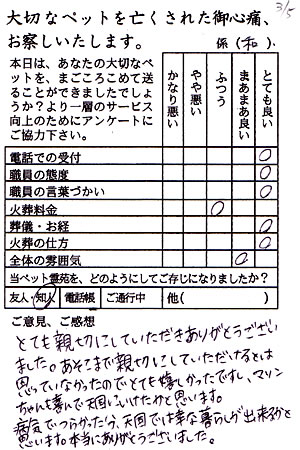 3/5
大切なペットを亡くされた御心痛、
お察しいたします。
係(和).
本日は、あなたの大切なペ
ットを、まごころこめて送
ることができましたでしょ
うか?より一層のサービス
向上のためにアンケートに
ご協力下さい。
かなり悪い
やや悪い
ふつう
まあまあ良い
とても良い
電話での受付
職員の態度
職員の言葉づかい
火葬料金
葬儀・お経
火葬の仕方
全体の雰囲気
当ペット霊苑を、どのようにしてご存じになりましたか?
友人・知人
電話帳
ご通行中
他( )
ご意見、ご感想
とても親切にしていただきありがとうござい
ました。あそこまで親切にしていただけるとは
思っていなかったのでとても嬉しかったですし、マリン
ちゃんも喜んで天国にいけたかと思います。
病気でつらかったから、天国では幸な暮らしが出来るかと
思います。本当にありがとうございました。